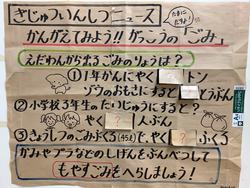 きじゅついんしつニュース
たまに
だすよ!
かんがえてみよう!!がっこうの「ごみ」
えだわんから出るごみのりょうは?
①1年かんにやく?トン
ゾウのおもさにするととうぶん
②小学校3年生のたいじゅうにすると?
やく?人ぶん
③きょうしつのごみぶくろ(45ℓ)で、やく?ふくろ
かみやプラなどのしげんをぶんべつして
もやすごみをへらしましょう!